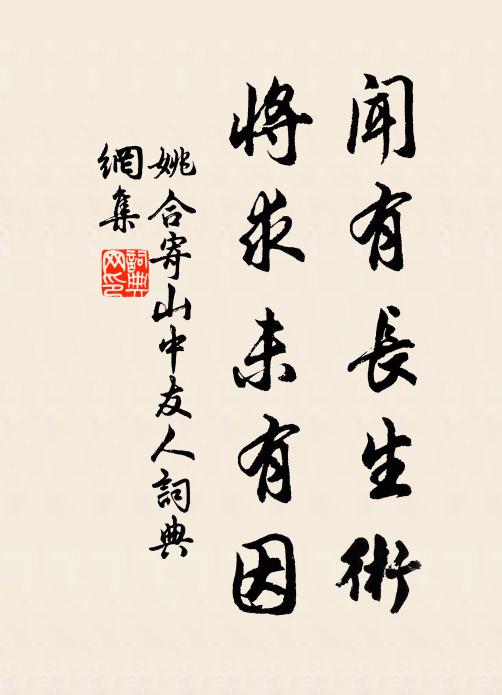 聞有長生術
將求未有因
姚合寄山中友人詞典
網集
詞典网印